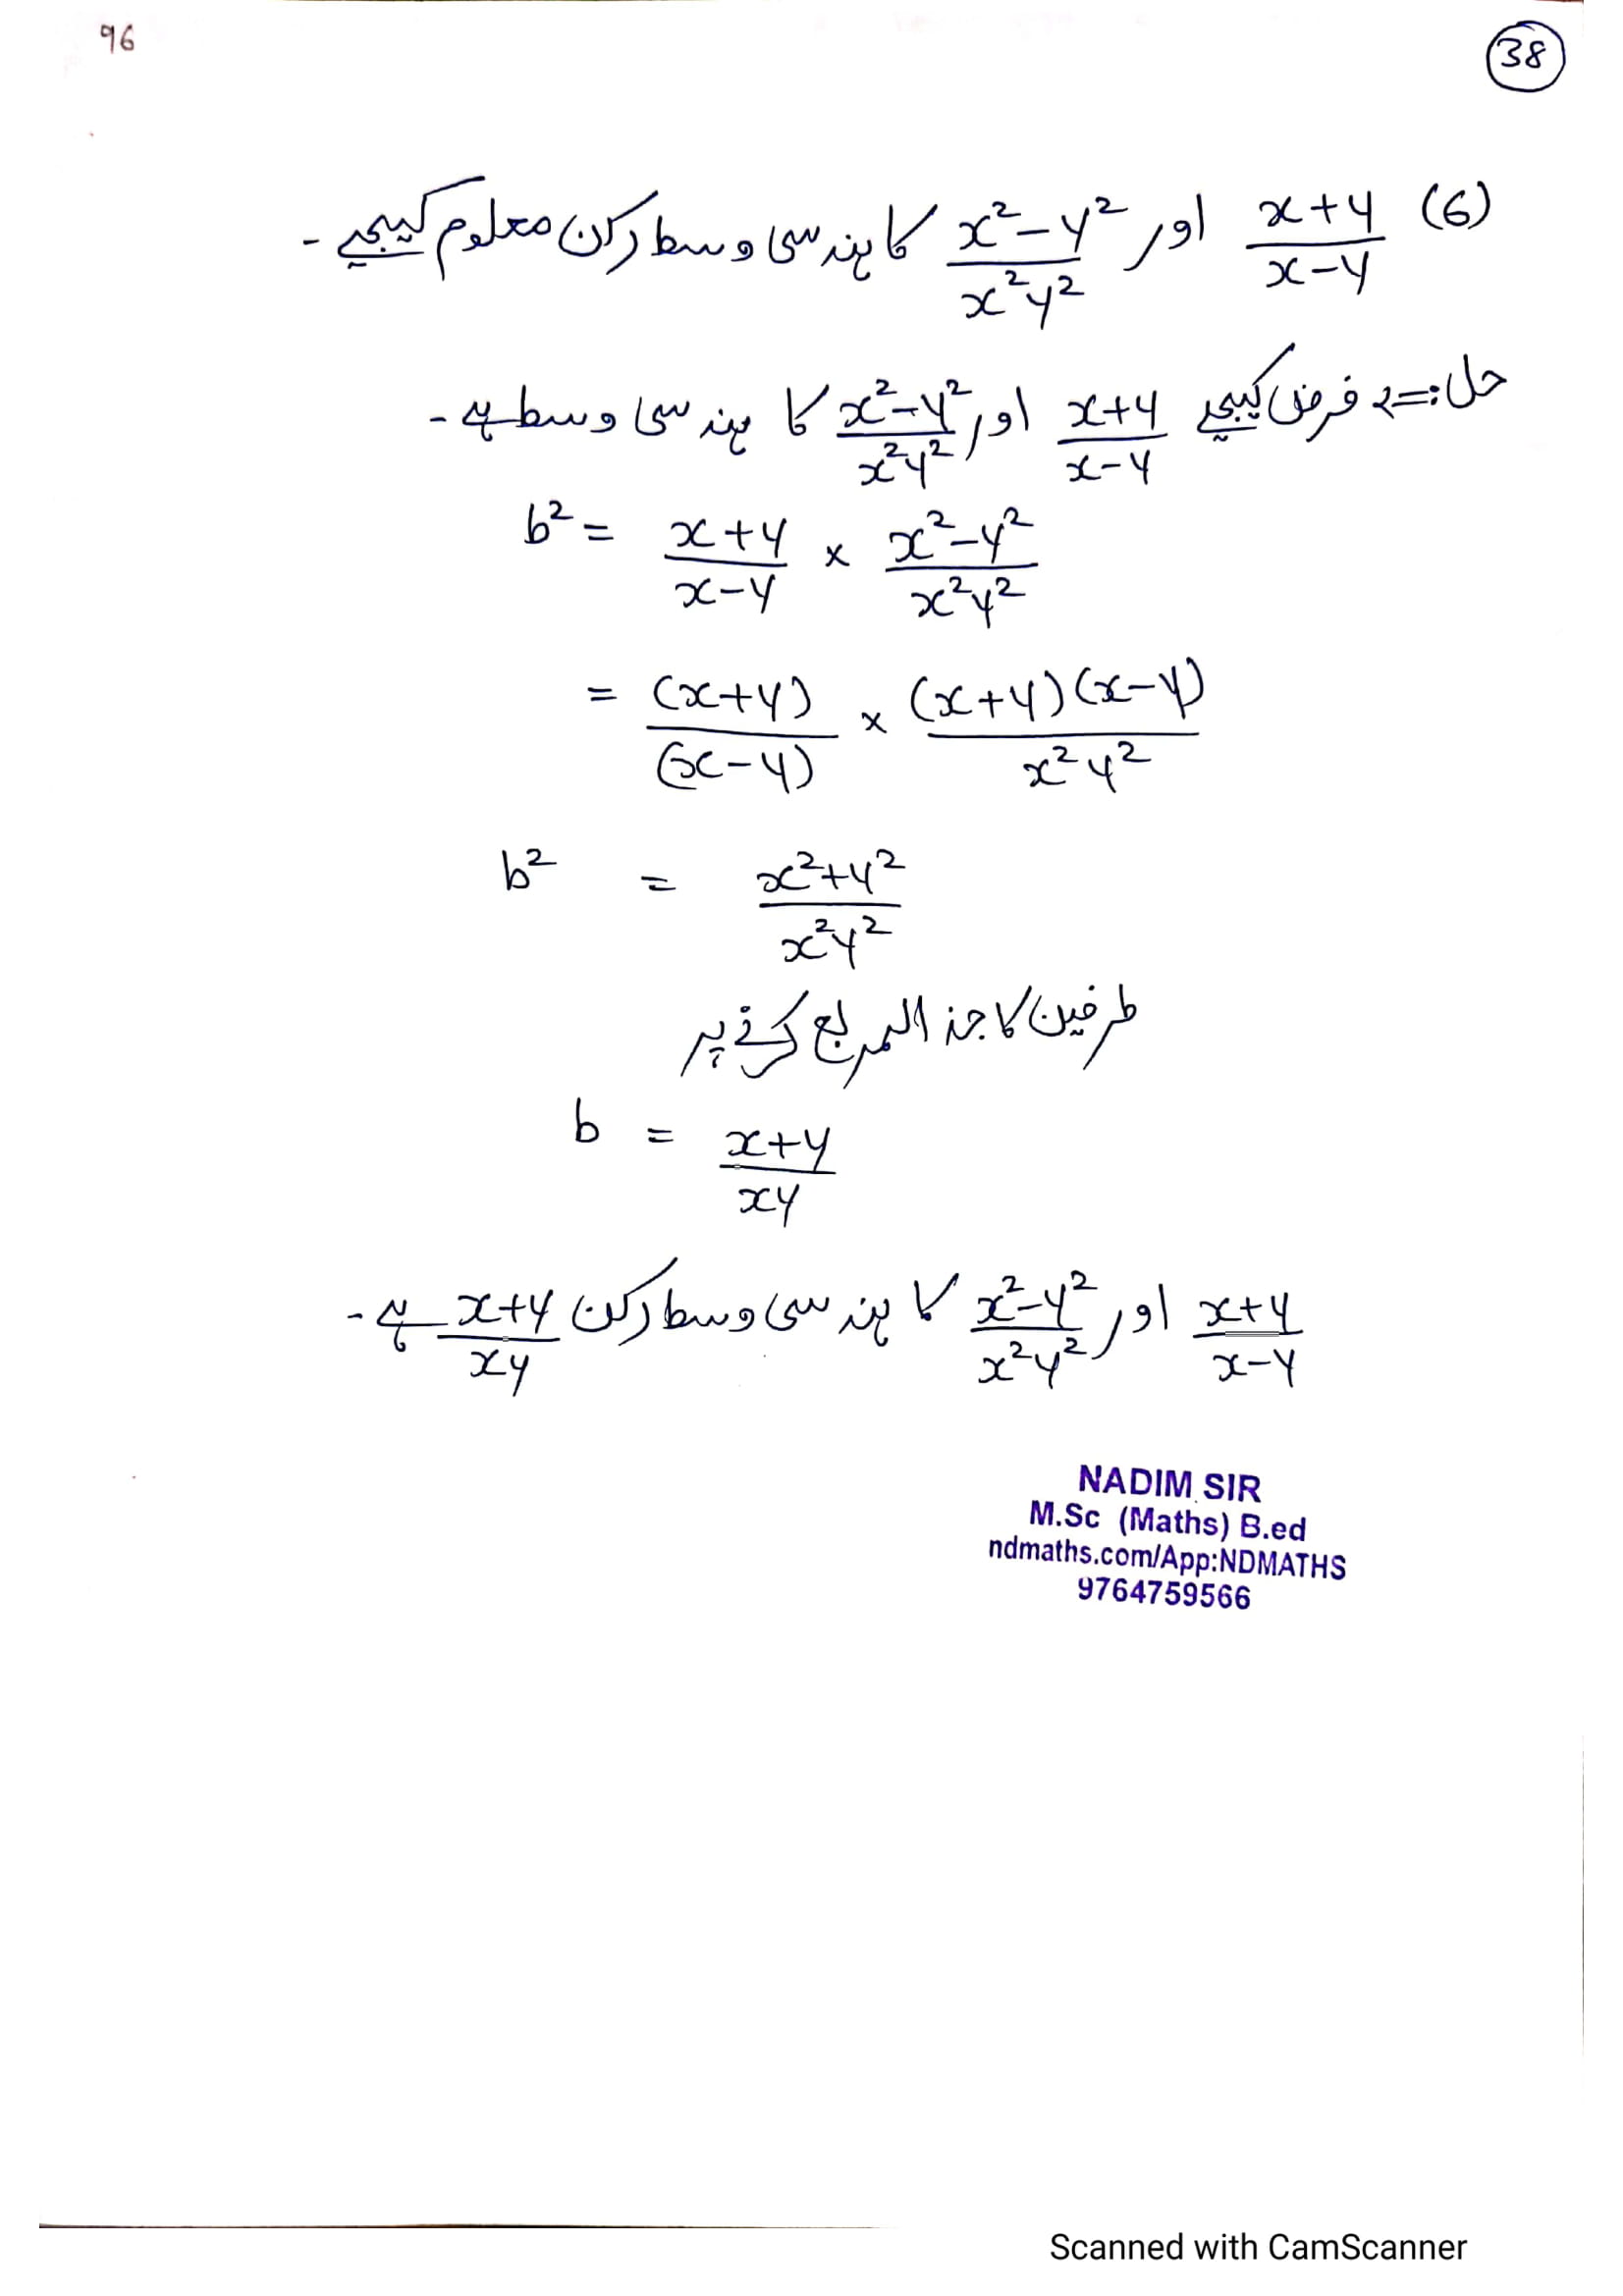 96
38
(6) (x+y)/(x-y) اور (x²-y²)/(x²y²) کا ہندسی وسط رکن معلوم کیجیے۔
حل:= فرض کیجیے (x+y)/(x-y) اور (x²-y²)/(x²y²) کا ہندسی وسط ہے۔
b² = (x+y)/(x-y) × (x²-y²)/(x²y²)
= (x+y)/(x-y) × (x+y)(x-y)/(x²y²)
b² = (x²+y²)/(x²y²)
طرفین کا جذالمربع کرنے پر
b = (x+y)/(xy)
(x+y)/(x-y) اور (x²-y²)/(x²y²) کا ہندسی وسط رکن (x+y)/(xy) ہے۔
NADIM SIR
M.Sc (Maths) B.ed
ndmaths.com/App:NDMATHS
9764759566
Scanned with CamScanner